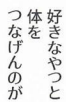 好きなやつと
体を
つなげんのが